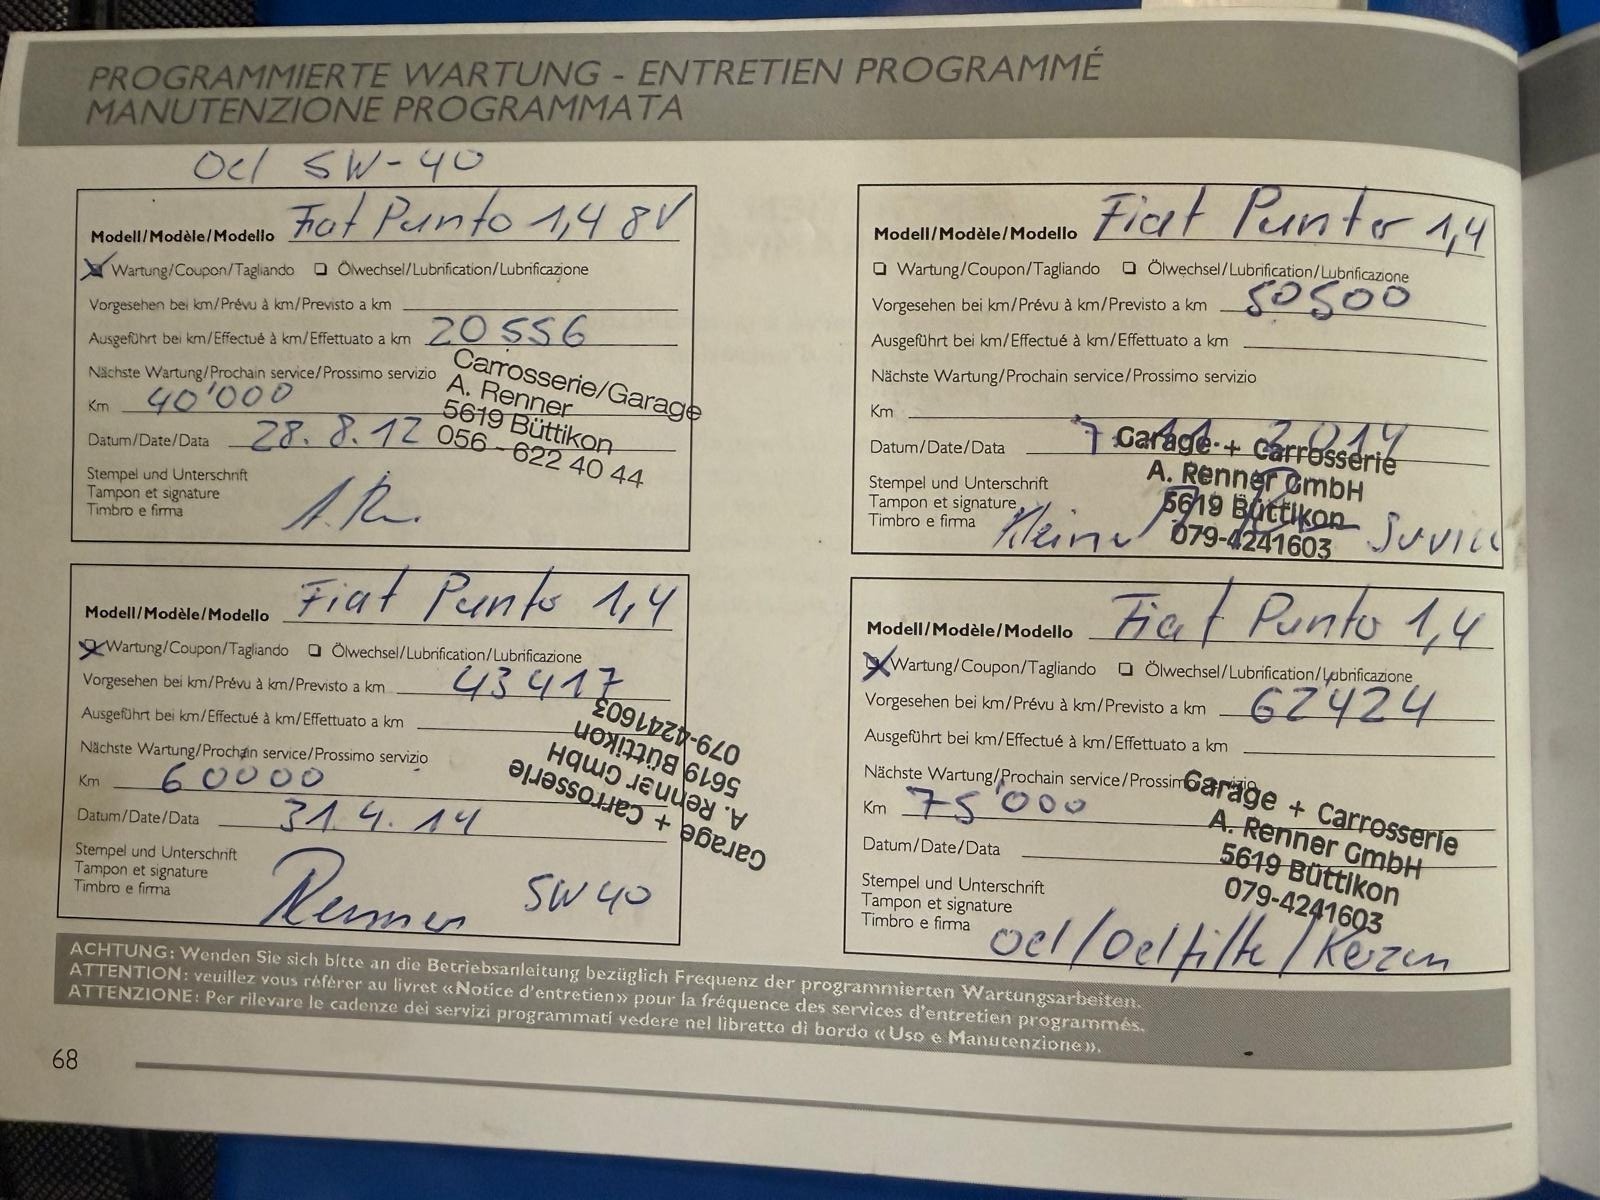 PROGRAMMIERTE WARTUNG - ENTRETIEN PROGRAMMÉ
MANUTENZIONE PROGRAMMATA
Oel 5W-40
Modell/Modèle/Modello Fiat Punto 1,4 8V
Wartung/Coupon/Tagliando Ölwechsel/Lubrification/Lubrificazione
Vorgesehen bei km/Prévu à km/Previsto a km
Ausgeführt bei km/Effectué à km/Effettuato a km 20556
Nächste Wartung/Prochain service/Prossimo servizio
Km 40'000
Datum/Date/Data 28.8.12
Stempel und Unterschrift
Tampon et signature
Timbro e firma
Carrosserie/Garage
A. Renner
5619 Büttikon
056 - 622 40 44
Modell/Modèle/Modello Fiat Punto 1,4
Wartung/Coupon/Tagliando Ölwechsel/Lubrification/Lubrificazione
Vorgesehen bei km/Prévu à km/Previsto a km 43417
Ausgeführt bei km/Effectué à km/Effettuato a km
Nächste Wartung/Prochain service/Prossimo servizio
Km 60000
Datum/Date/Data 31.4.14
Stempel und Unterschrift
Tampon et signature
Timbro e firma
Renner 5W40
Garage + Carrosserie
A. Renner GmbH
5619 Büttikon
079-4241603
Modell/Modèle/Modello Fiat Punto 1,4
Wartung/Coupon/Tagliando Ölwechsel/Lubrification/Lubrificazione
Vorgesehen bei km/Prévu à km/Previsto a km 50500
Ausgeführt bei km/Effectué à km/Effettuato a km
Nächste Wartung/Prochain service/Prossimo servizio
Km
Datum/Date/Data 7. 11. 2014
Stempel und Unterschrift
Tampon et signature
Timbro e firma
Kleiner
Garage + Carrosserie
A. Renner GmbH
5619 Büttikon
079-4241603
Modell/Modèle/Modello Fiat Punto 1,4
Wartung/Coupon/Tagliando Ölwechsel/Lubrification/Lubrificazione
Vorgesehen bei km/Prévu à km/Previsto a km 62424
Ausgeführt bei km/Effectué à km/Effettuato a km
Nächste Wartung/Prochain service/Prossimo servizio
Km 75'000
Datum/Date/Data
Stempel und Unterschrift
Tampon et signature
Timbro e firma
Garage + Carrosserie
A. Renner GmbH
5619 Büttikon
079-4241603
Oel/Oelfilte/Kerzen
ACHTUNG: Wenden Sie sich bitte an die Betriebsanleitung bezüglich Frequenz der programmierten Wartungsarbeiten.
ATTENTION: veuillez vous référer au livret «Notice d'entretien» pour la fréquence des services d'entretien programmés.
ATTENZIONE: Per rilevare le cadenze dei servizi programmati vedere nel libretto di bordo «Uso e Manutenzione».
68